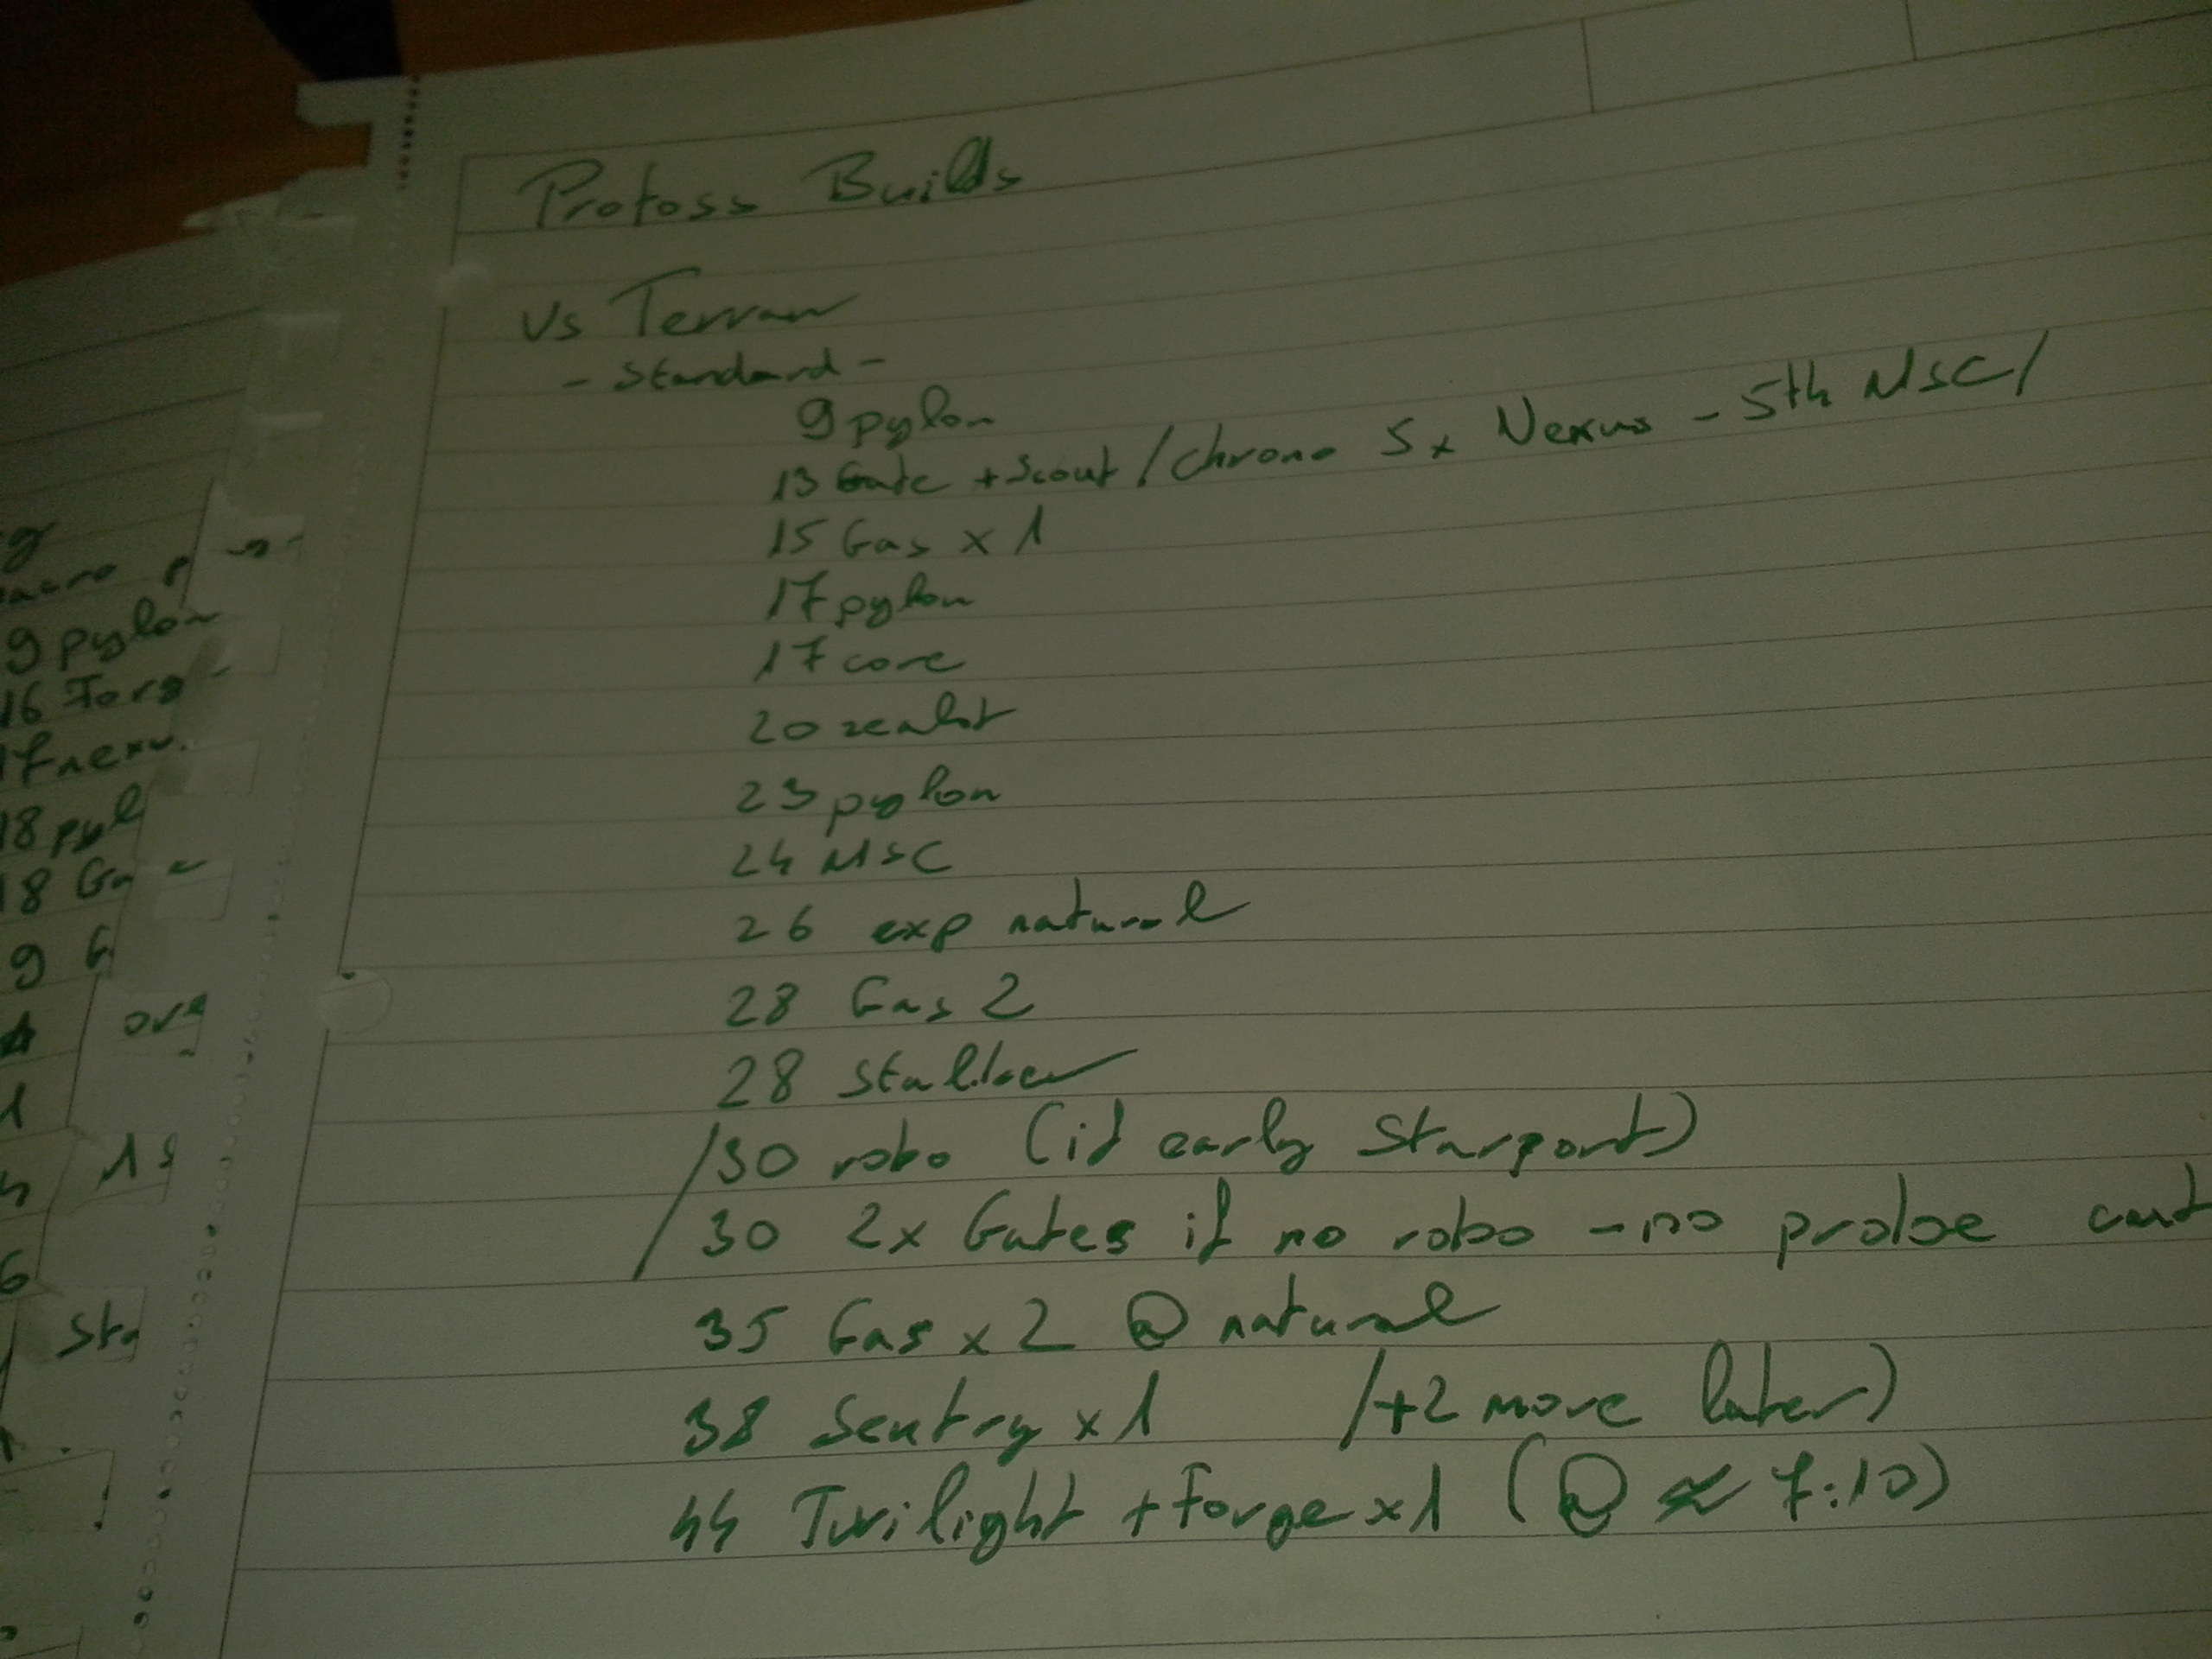 Protoss Builds
Vs Terran
- Standard -
9 pylon
13 Gate + Scout / Chrono 5x Nexus - 5th MSC/
15 Gas x 1
17 pylon
17 core
20 zealot
23 pylon
24 MSC
26 exp natural
28 Gas 2
28 Stalker
/30 robo (if early Starport)
/30 2x Gates if no robo - no probe cut
35 Gas x 2 @ natural
38 Sentry x 1 /+2 more later)
44 Twilight + Forge x1 (@ ≈ 7:10)
9 pylon
16 Forg
17 nexu
18 pyl
18 Ga
9 G
ore
1s
Sta